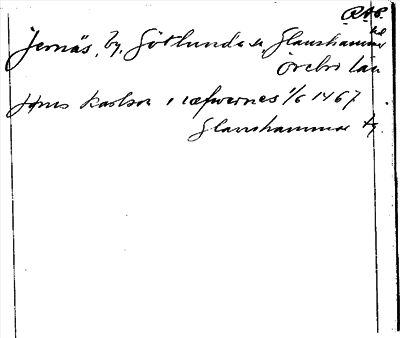 RAP.
Jernäs, by, Götlunda sn, Glanshammar hd
Örebro län
Jönis Karlson i iæfwernes 1/6 1467
Glanshammar tg